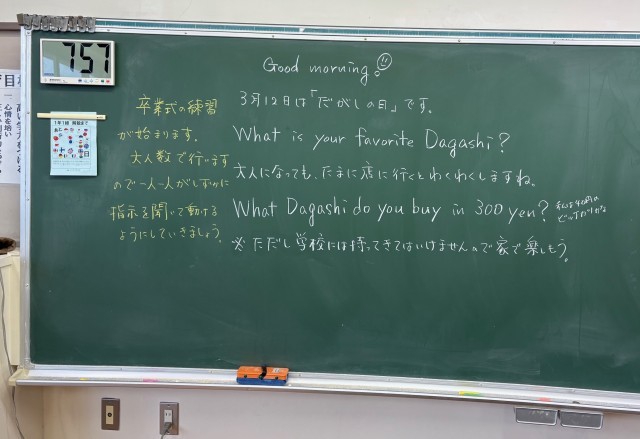 757
Good morning!
3月12日は「だがしの日」です。
What is your favorite Dagashi?
大人になっても、たまに店に行くとわくわくしますね。
What Dagashi do you buy in 300 yen?
※ ただし学校には持ってきてはいけませんので家で楽しもう。
卒業式の練習
が始まります。
大人数で行います
ので一人一人がしずかに
指示を聞いて動ける
ようにしていきましょう。